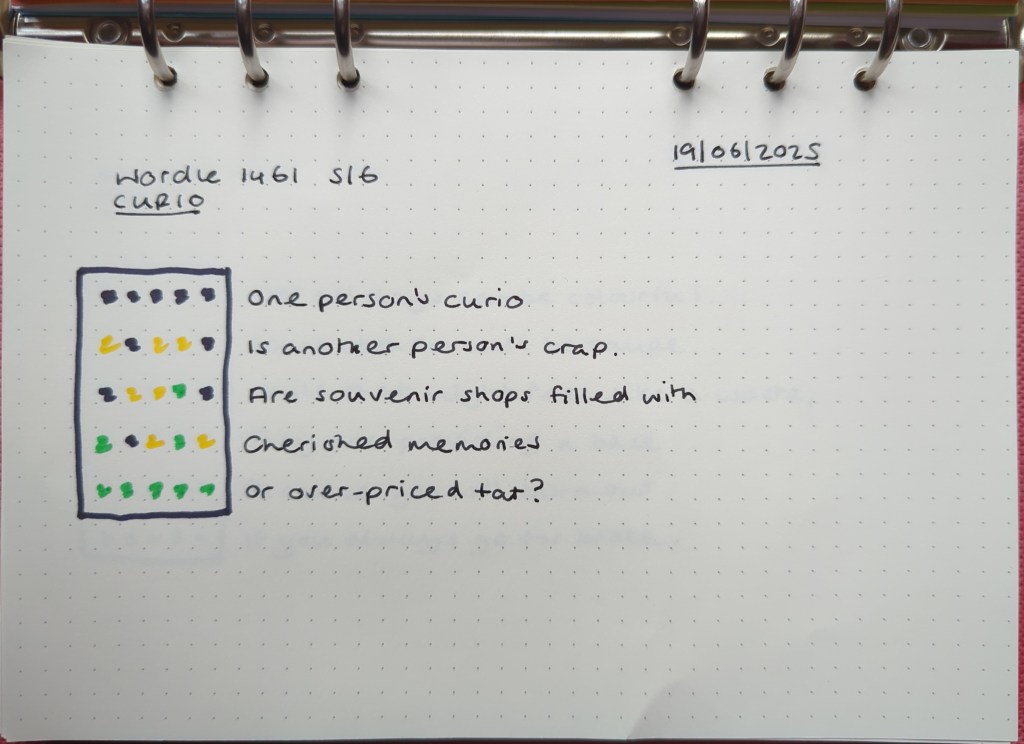 19/06/2025
Wordle 1461 5/6
CURIO
One person's curio
Is another person's crap.
Are souvenir shops filled with
Cherished memories
or over-priced tat?